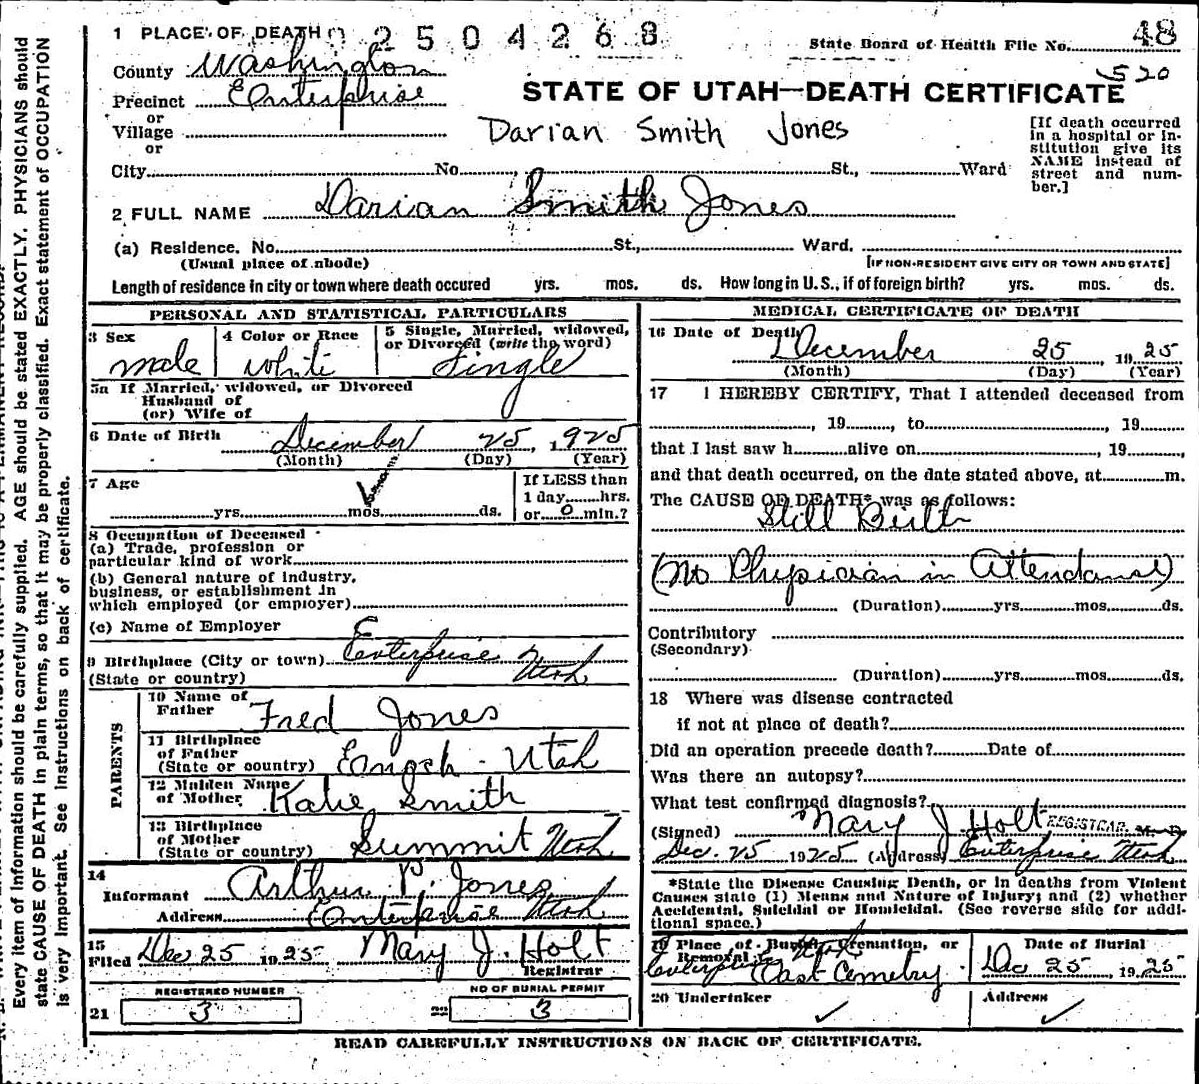 1 PLACE OF DEATH 0 2 5 0 4 2 6 8
State Board of Health File No. 48
County Washington
520
Precinct Enterprise
STATE OF UTAH—DEATH CERTIFICATE
or
Village
Darian Smith Jones
[If death occurred in a hospital or institution give its NAME instead of street and number.]
or
City No. St., Ward
2 FULL NAME Darian Smith Jones
(a) Residence. No. St., Ward.
(Usual place of abode) [IF NON-RESIDENT GIVE CITY OR TOWN AND STATE]
Length of residence in city or town where death occured yrs. mos. ds. How long in U. S., if of foreign birth? yrs. mos. ds.
PERSONAL AND STATISTICAL PARTICULARS
3 Sex male
4 Color or Race white
5 Single, Married, widowed, or Divorced (write the word) Single
5a If Married, widowed, or Divorced
Husband of
(or) Wife of
6 Date of Birth December 25, 1925
(Month) (Day) (Year)
7 Age yrs. mos. ds.
If LESS than
1 day hrs.
or 0 min.?
8 Occupation of Deceased
(a) Trade, profession or
particular kind of work
(b) General nature of industry,
business, or establishment in
which employed (or employer)
(c) Name of Employer
9 Birthplace (City or town) Enterprise Utah
(State or country)
PARENTS
10 Name of
Father Fred Jones
11 Birthplace
of Father Enoch - Utah
(State or country)
12 Maiden Name
of Mother Katie Smith
13 Birthplace
of Mother Summit Utah
(State or country)
14
Informant Arthur P. Jones
Address Enterprise Utah
15
Filed Dec 25 1925 Mary J. Holt
Registrar
REGISTERED NUMBER
21 3
NO OF BURIAL PERMIT
22 3
MEDICAL CERTIFICATE OF DEATH
16 Date of Death December 25 1925
(Month) (Day) (Year)
17 I HEREBY CERTIFY, That I attended deceased from
, 19 , to , 19
that I last saw h alive on , 19 ,
and that death occurred, on the date stated above, at m.
The CAUSE OF DEATH* was as follows:
Still Birth
(No Physician in Attendance)
(Duration) yrs. mos. ds.
Contributory
(Secondary)
(Duration) yrs. mos. ds.
18 Where was disease contracted
if not at place of death?
Did an operation precede death? Date of
Was there an autopsy?
What test confirmed diagnosis?
(Signed) Mary J. Holt REGISTRAR. M. D.
Dec. 25 1925 (Address) Enterprise Utah
*State the Disease Causing Death, or in deaths from Violent
Causes state (1) Means and Nature of Injury; and (2) whether
Accidental, Suicidal or Homicidal. (See reverse side for additional space.)
19 Place of Burial, Cremation, or
Removal Enterprise Utah East Cemetry
Date of Burial
Dec 25, 1925
20 Undertaker
Address
READ CAREFULLY INSTRUCTIONS ON BACK OF CERTIFICATE.
Every item of information should be carefully supplied. AGE should be stated EXACTLY. PHYSICIANS should
state CAUSE OF DEATH in plain terms, so that it may be properly classified. Exact statement of OCCUPATION
is very important. See instructions on back of certificate.